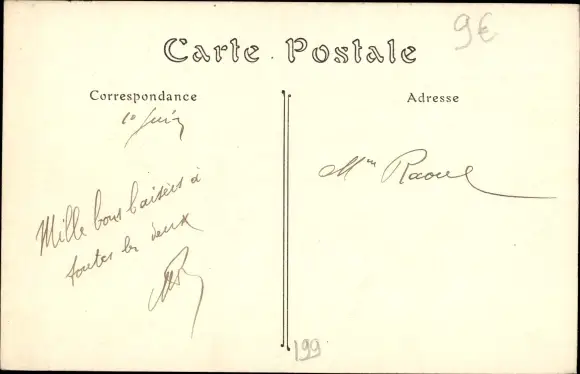 9€
Carte Postale
Correspondance
Adresse
10 Juin
Mme Raoul
Mille bons baisers à
toutes les deux
199